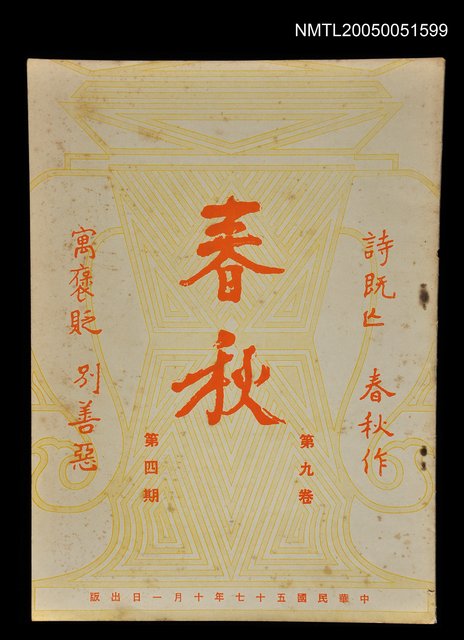 NMTL20050051599
春秋
詩既亡 春秋作
寓褒貶 別善惡
第九卷
第四期
中華民國五十七年十月一日出版